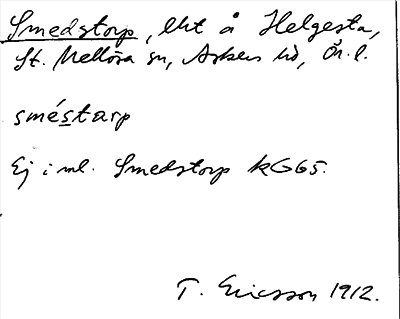 Smedstorp, lht å Helgesta,
St. Mellösa sn, Askers hd, Ön. l.
sméstarp
Ej i ml. Smedstorp kG65.
T. Ericsson 1912.